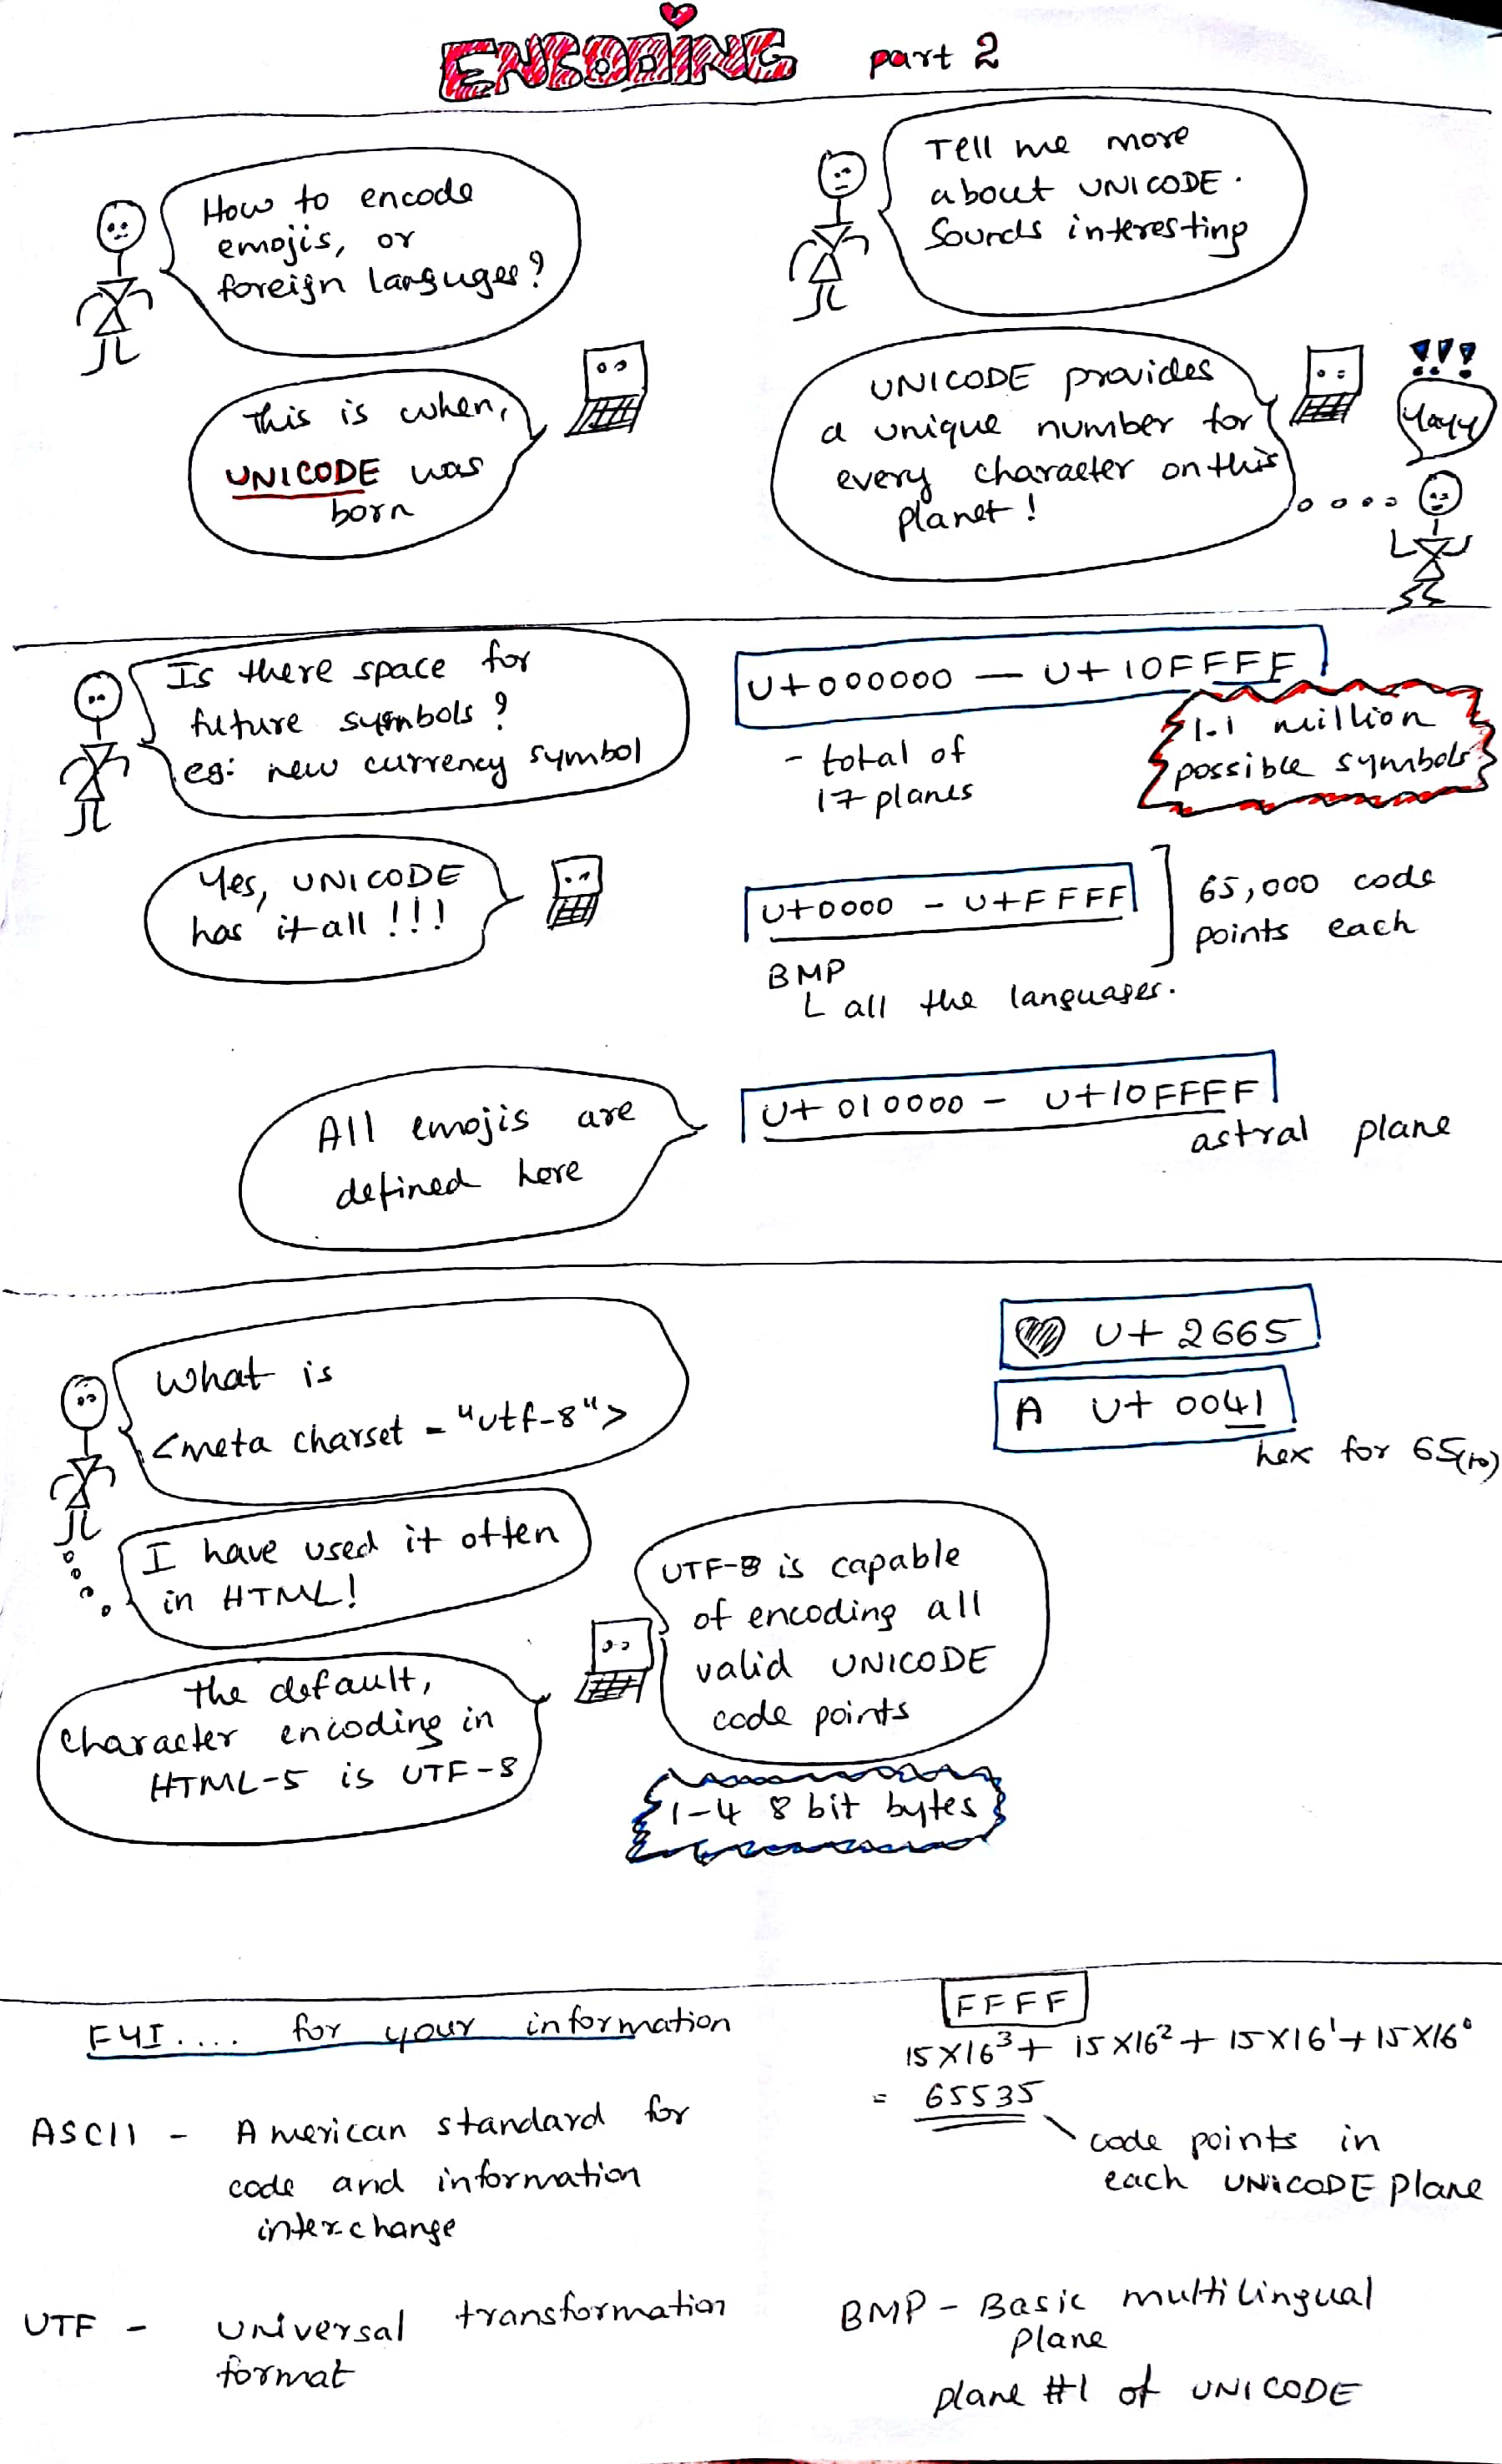 ENCODING part 2
How to encode
emojis, or
foreign languges?
This is when,
UNICODE was
born
Tell me more
about UNICODE.
Sounds interesting
UNICODE provides
a unique number for
every character on this
planet!
!!!
Yayy
Is there space for
future symbols?
eg: new currency symbol
Yes, UNICODE
has it all!!!
U+000000 — U+10FFFF
1.1 million
possible symbols
- total of
17 planes
U+0000 - U+FFFF
65,000 code
points each
BMP
L all the languages.
All emojis are
defined here
U+010000 - U+10FFFF
astral plane
What is
<meta charset = "utf-8">
I have used it often
in HTML!
The default,
character encoding in
HTML-5 is UTF-8
UTF-8 is capable
of encoding all
valid UNICODE
code points
1-4 8 bit bytes
♥ U+2665
A U+0041
hex for 65(10)
FYI.... for your information
ASCII - American standard for
code and information
interchange
UTF - universal transformation
format
FFFF
15×16³ + 15×16² + 15×16¹ + 15×16⁰
= 65535
code points in
each UNICODE plane
BMP - Basic multilingual
plane
plane #1 of UNICODE